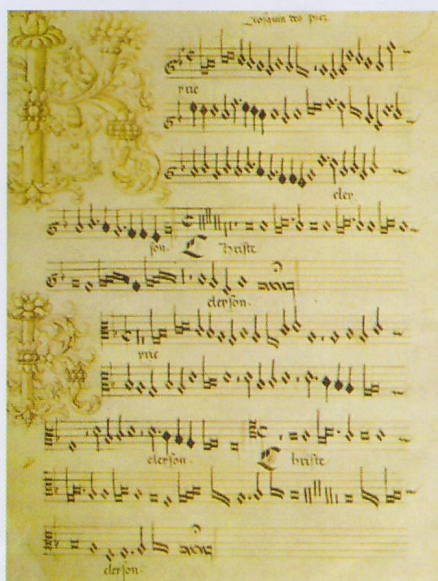 Josquin des prez
K
rie
eley
son. Christe
eleyson.
K
rie
eleyson. Christe
eleyson.